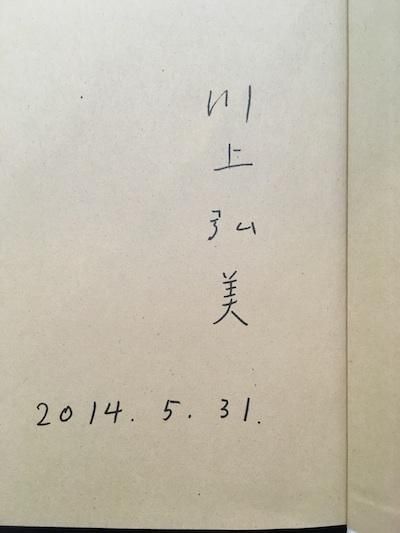 川上弘美
2014. 5. 31.